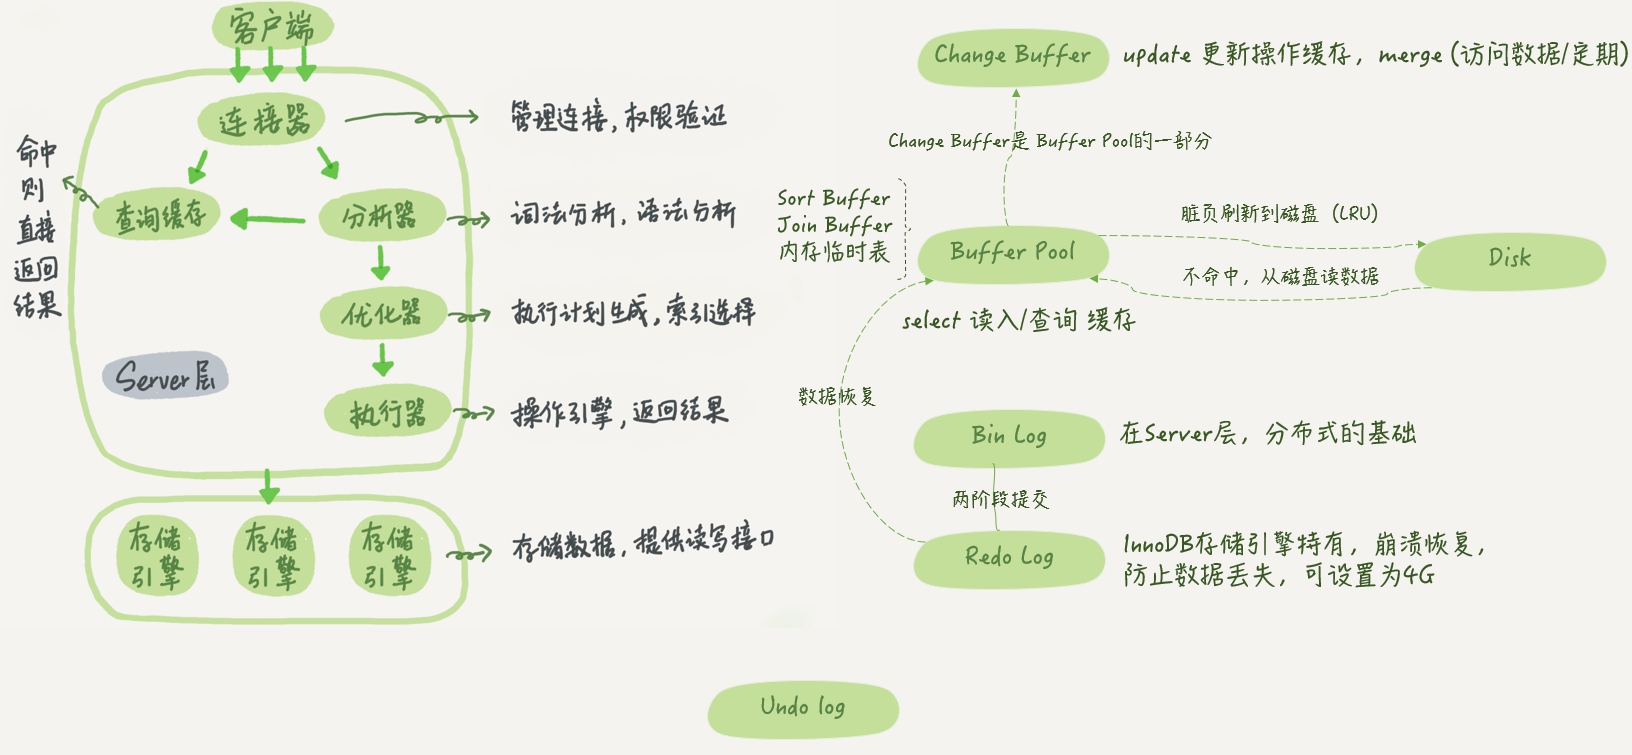 客户端
连接器
管理连接，权限验证
命中
则
直接
返回
结果
查询缓存
分析器
词法分析，语法分析
优化器
执行计划生成，索引选择
Server层
执行器
操作引擎，返回结果
存储
引擎
存储
引擎
存储
引擎
存储数据，提供读写接口
Change Buffer
update 更新操作缓存，merge (访问数据/定期)
Change Buffer是 Buffer Pool的一部分
Sort Buffer
Join Buffer
内存临时表
Buffer Pool
脏页刷新到磁盘（LRU）
不命中，从磁盘读数据
Disk
select 读入/查询 缓存
数据恢复
Bin Log
在Server层，分布式的基础
两阶段提交
Redo Log
InnoDB存储引擎特有，崩溃恢复，
防止数据丢失，可设置为4G
Undo log